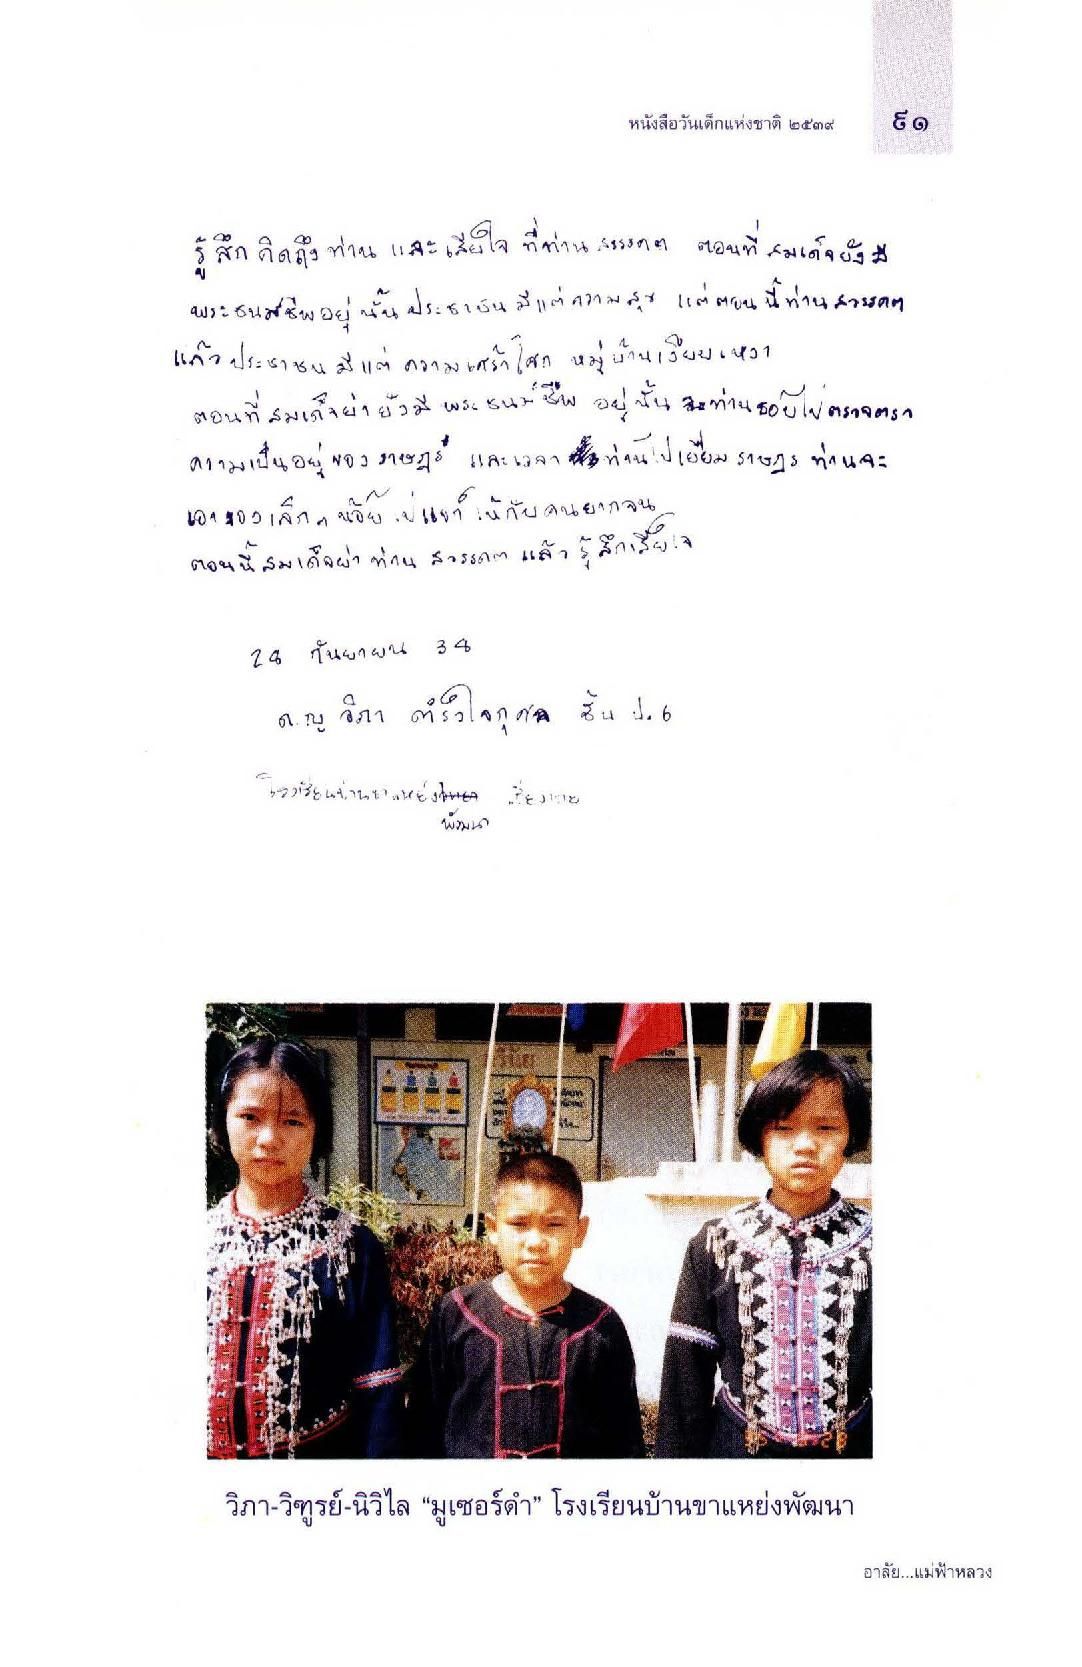 หนังสือวันเด็กแห่งชาติ ๒๕๓๙
๙๑
รู้สึกคิดถึงท่าน และเสียใจ ที่ท่านสวรรคต ตอนที่สมเด็จยังมี
พระชนม์ชีพอยู่นั้นประชาชนมีแต่ความสุข แต่ตอนนี้ท่านสวรรคต
แล้วประชาชนมีแต่ความเศร้าโศก หมู่บ้านเงียบเหงา
ตอนที่สมเด็จย่ายังมีพระชนม์ชีพ อยู่นั้น ท่านชอบไปตรวจตรา
ความเป็นอยู่ของราษฎร์ และเวลา ท่านไปเยี่ยมราษฎร ท่านจะ
เอาของเล็กๆ น้อยๆ ไปแจก ให้กับคนยากจน
ตอนนี้สมเด็จย่าท่าน สวรรคตแล้วรู้สึกเสียใจ
28 กันยายน 38
ด.ญ วิภา ชั้น ป.6
โรงเรียนบ้านขาแหย่ง เชียงราย
พัฒนา
วินัย
วิภา-วิฑูรย์-นิวิไล “มูเซอร์ดำ” โรงเรียนบ้านขาแหย่งพัฒนา
อาลัย...แม่ฟ้าหลวง